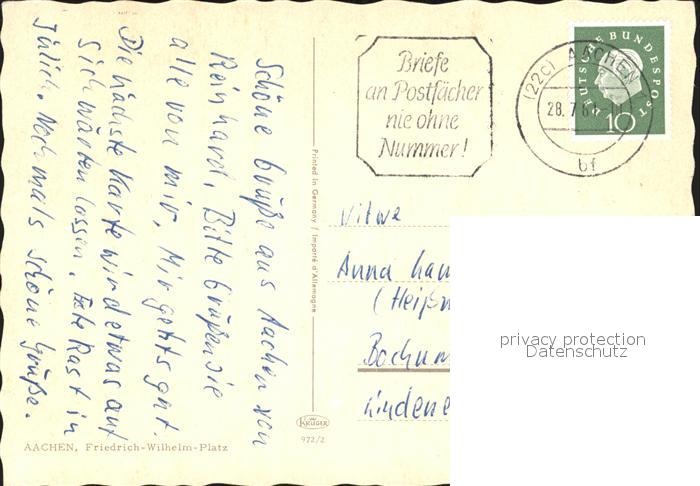 Schöne Grüße aus Aachen von
Reinhard. Bitte Grüßen Sie
alle von mir. Mir gehts gut.
Die nächste Karte wird etwas auf
sich warten lassen. Rast in
Jülich. Nochmals schöne Grüße.
AACHEN, Friedrich-Wilhelm-Platz
Printed in Germany / Importé d'Allemagne
KRÜGER
972/2
Briefe
an Postfächer
nie ohne
Nummer!
(22c) AACHEN
28.7.61
bf
DEUTSCHE BUNDESPOST
10
Witwe
Anna
Bochum
privacy protection
Datenschutz